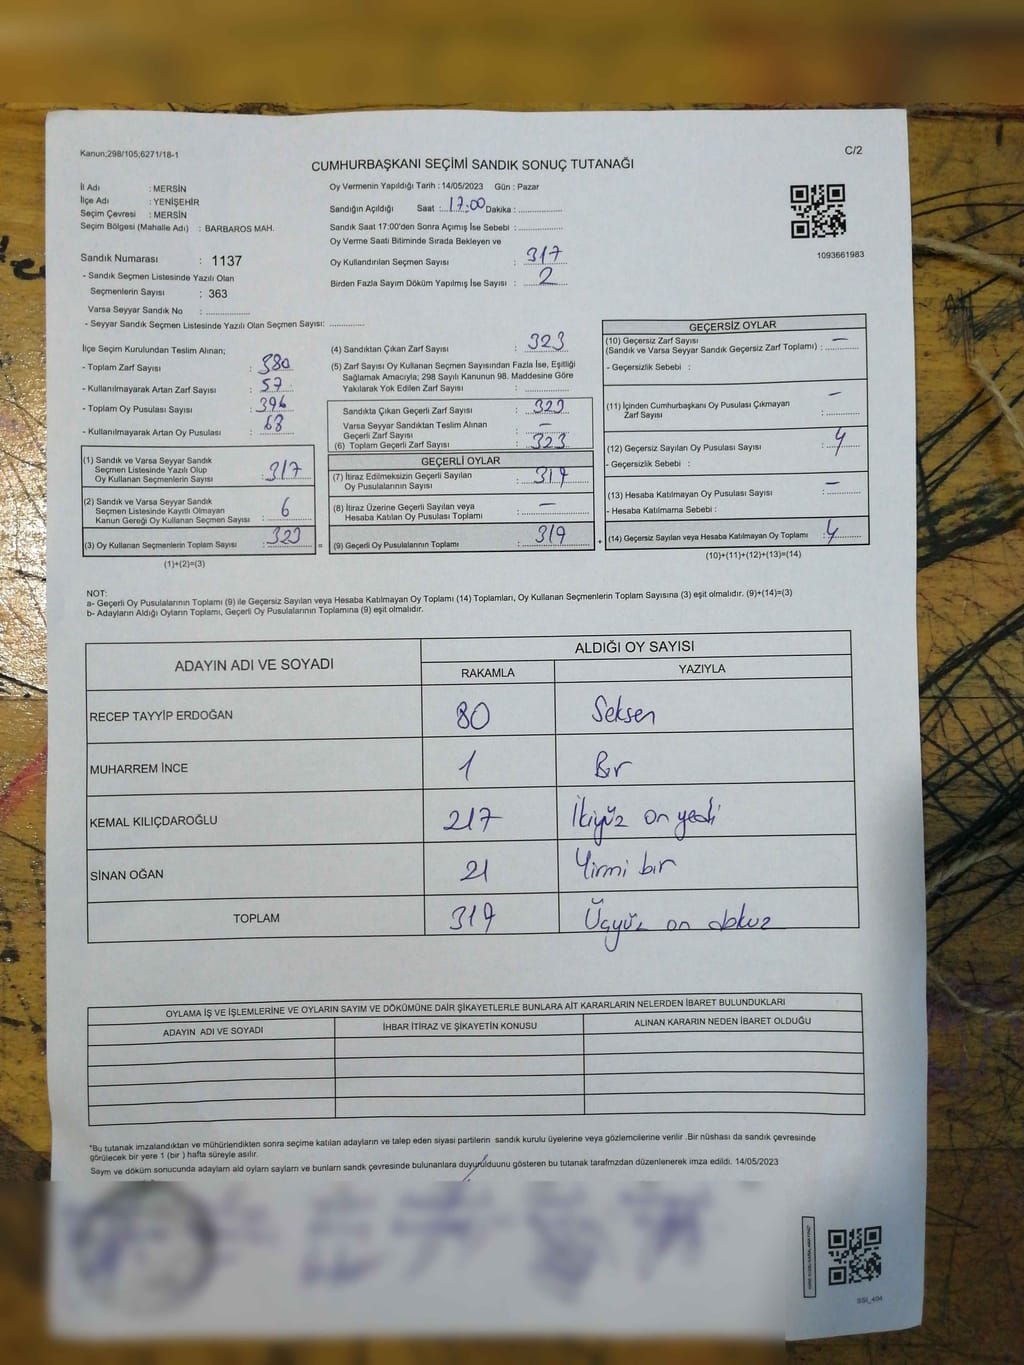 Kanun;298/105,6271/18-1
C/2
CUMHURBAŞKANI SEÇİMİ SANDIK SONUÇ TUTANAĞI
İl Adı : MERSİN
İlçe Adı : YENİŞEHİR
Seçim Çevresi : MERSİN
Seçim Bölgesi (Mahalle Adı) : BARBAROS MAH.
Sandık Numarası : 1137
- Sandık Seçmen Listesinde Yazılı Olan
Seçmenlerin Sayısı : 363
Varsa Seyyar Sandık No : ..............
- Seyyar Sandık Seçmen Listesinde Yazılı Olan Seçmen Sayısı: ............
Oy Vermenin Yapıldığı Tarih : 14/05/2023 Gün : Pazar
Sandığın Açıldığı Saat : 17.00 Dakika : ..............
Sandık Saat 17:00'den Sonra Açımış İse Sebebi : ..............
Oy Verme Saati Bitiminde Sırada Bekleyen ve
Oy Kullandırılan Seçmen Sayısı : 317
Birden Fazla Sayım Döküm Yapılmış İse Sayısı : 2
1093661983
İlçe Seçim Kurulundan Teslim Alınan;
- Toplam Zarf Sayısı : 380
- Kullanılmayarak Artan Zarf Sayısı : 57
- Toplam Oy Pusulası Sayısı : 396
- Kullanılmayarak Artan Oy Pusulası : 68
(1) Sandık ve Varsa Seyyar Sandık
Seçmen Listesinde Yazılı Olup
Oy Kullanan Seçmenlerin Sayısı : 317
(2) Sandık ve Varsa Seyyar Sandık
Seçmen Listesinde Kayıtlı Olmayan
Kanun Gereği Oy Kullanan Seçmen Sayısı : 6
(3) Oy Kullanan Seçmenlerin Toplam Sayısı : 323 =
(1)+(2)=(3)
(4) Sandıktan Çıkan Zarf Sayısı : 323
(5) Zarf Sayısı Oy Kullanan Seçmen Sayısından Fazla İse, Eşitliği
Sağlamak Amacıyla; 298 Sayılı Kanunun 98. Maddesine Göre
Yakılarak Yok Edilen Zarf Sayısı : ..............
Sandıkta Çıkan Geçerli Zarf Sayısı : 323
Varsa Seyyar Sandıktan Teslim Alınan
Geçerli Zarf Sayısı : —
(6) Toplam Geçerli Zarf Sayısı : 323
GEÇERLİ OYLAR
(7) İtiraz Edilmeksizin Geçerli Sayılan
Oy Pusulalarının Sayısı : 319
(8) İtiraz Üzerine Geçerli Sayılan veya
Hesaba Katılan Oy Pusulası Toplamı : —
(9) Geçerli Oy Pusulalarının Toplamı : 319 +
GEÇERSİZ OYLAR
(10) Geçersiz Zarf Sayısı
(Sandık ve Varsa Seyyar Sandık Geçersiz Zarf Toplamı) : —
- Geçersizlik Sebebi :
(11) İçinden Cumhurbaşkanı Oy Pusulası Çıkmayan
Zarf Sayısı : —
(12) Geçersiz Sayılan Oy Pusulası Sayısı : 4
- Geçersizlik Sebebi :
(13) Hesaba Katılmayan Oy Pusulası Sayısı : —
- Hesaba Katılmama Sebebi :
(14) Geçersiz Sayılan veya Hesaba Katılmayan Oy Toplamı : 4
(10)+(11)+(12)+(13)=(14)
NOT:
a- Geçerli Oy Pusulalarının Toplamı (9) ile Geçersiz Sayılan veya Hesaba Katılmayan Oy Toplamı (14) Toplamları, Oy Kullanan Seçmenlerin Toplam Sayısına (3) eşit olmalıdır. (9)+(14)=(3)
b- Adayların Aldığı Oyların Toplamı, Geçerli Oy Pusulalarının Toplamına (9) eşit olmalıdır.
ADAYIN ADI VE SOYADI
ALDIĞI OY SAYISI
RAKAMLA YAZIYLA
RECEP TAYYİP ERDOĞAN 80 Seksen
MUHARREM İNCE 1 Bir
KEMAL KILIÇDAROĞLU 217 İkiyüz on yedi
SİNAN OĞAN 21 Yirmi bir
TOPLAM 319 Üçyüz on dokuz
OYLAMA İŞ VE İŞLEMLERİNE VE OYLARIN SAYIM VE DÖKÜMÜNE DAİR ŞİKAYETLERLE BUNLARA AİT KARARLARIN NELERDEN İBARET BULUNDUKLARI
ADAYIN ADI VE SOYADI İHBAR İTİRAZ VE ŞİKAYETİN KONUSU ALINAN KARARIN NEDEN İBARET OLDUĞU
*Bu tutanak imzalandıktan ve mühürlendikten sonra seçime katılan adayların ve talep eden siyasi partilerin sandık kurulu üyelerine veya gözlemcilerine verilir .Bir nüshası da sandık çevresinde
görülecek bir yere 1 (bir ) hafta süreyle asılır.
Saym ve döküm sonucunda adaylam ald oylarn saylarn ve bunlarn sandk çevresinde bulunanlara duyurulduunu gösteren bu tutanak tarafmzdan düzenlenerek imza edildi. 14/05/2023
SSİ_404